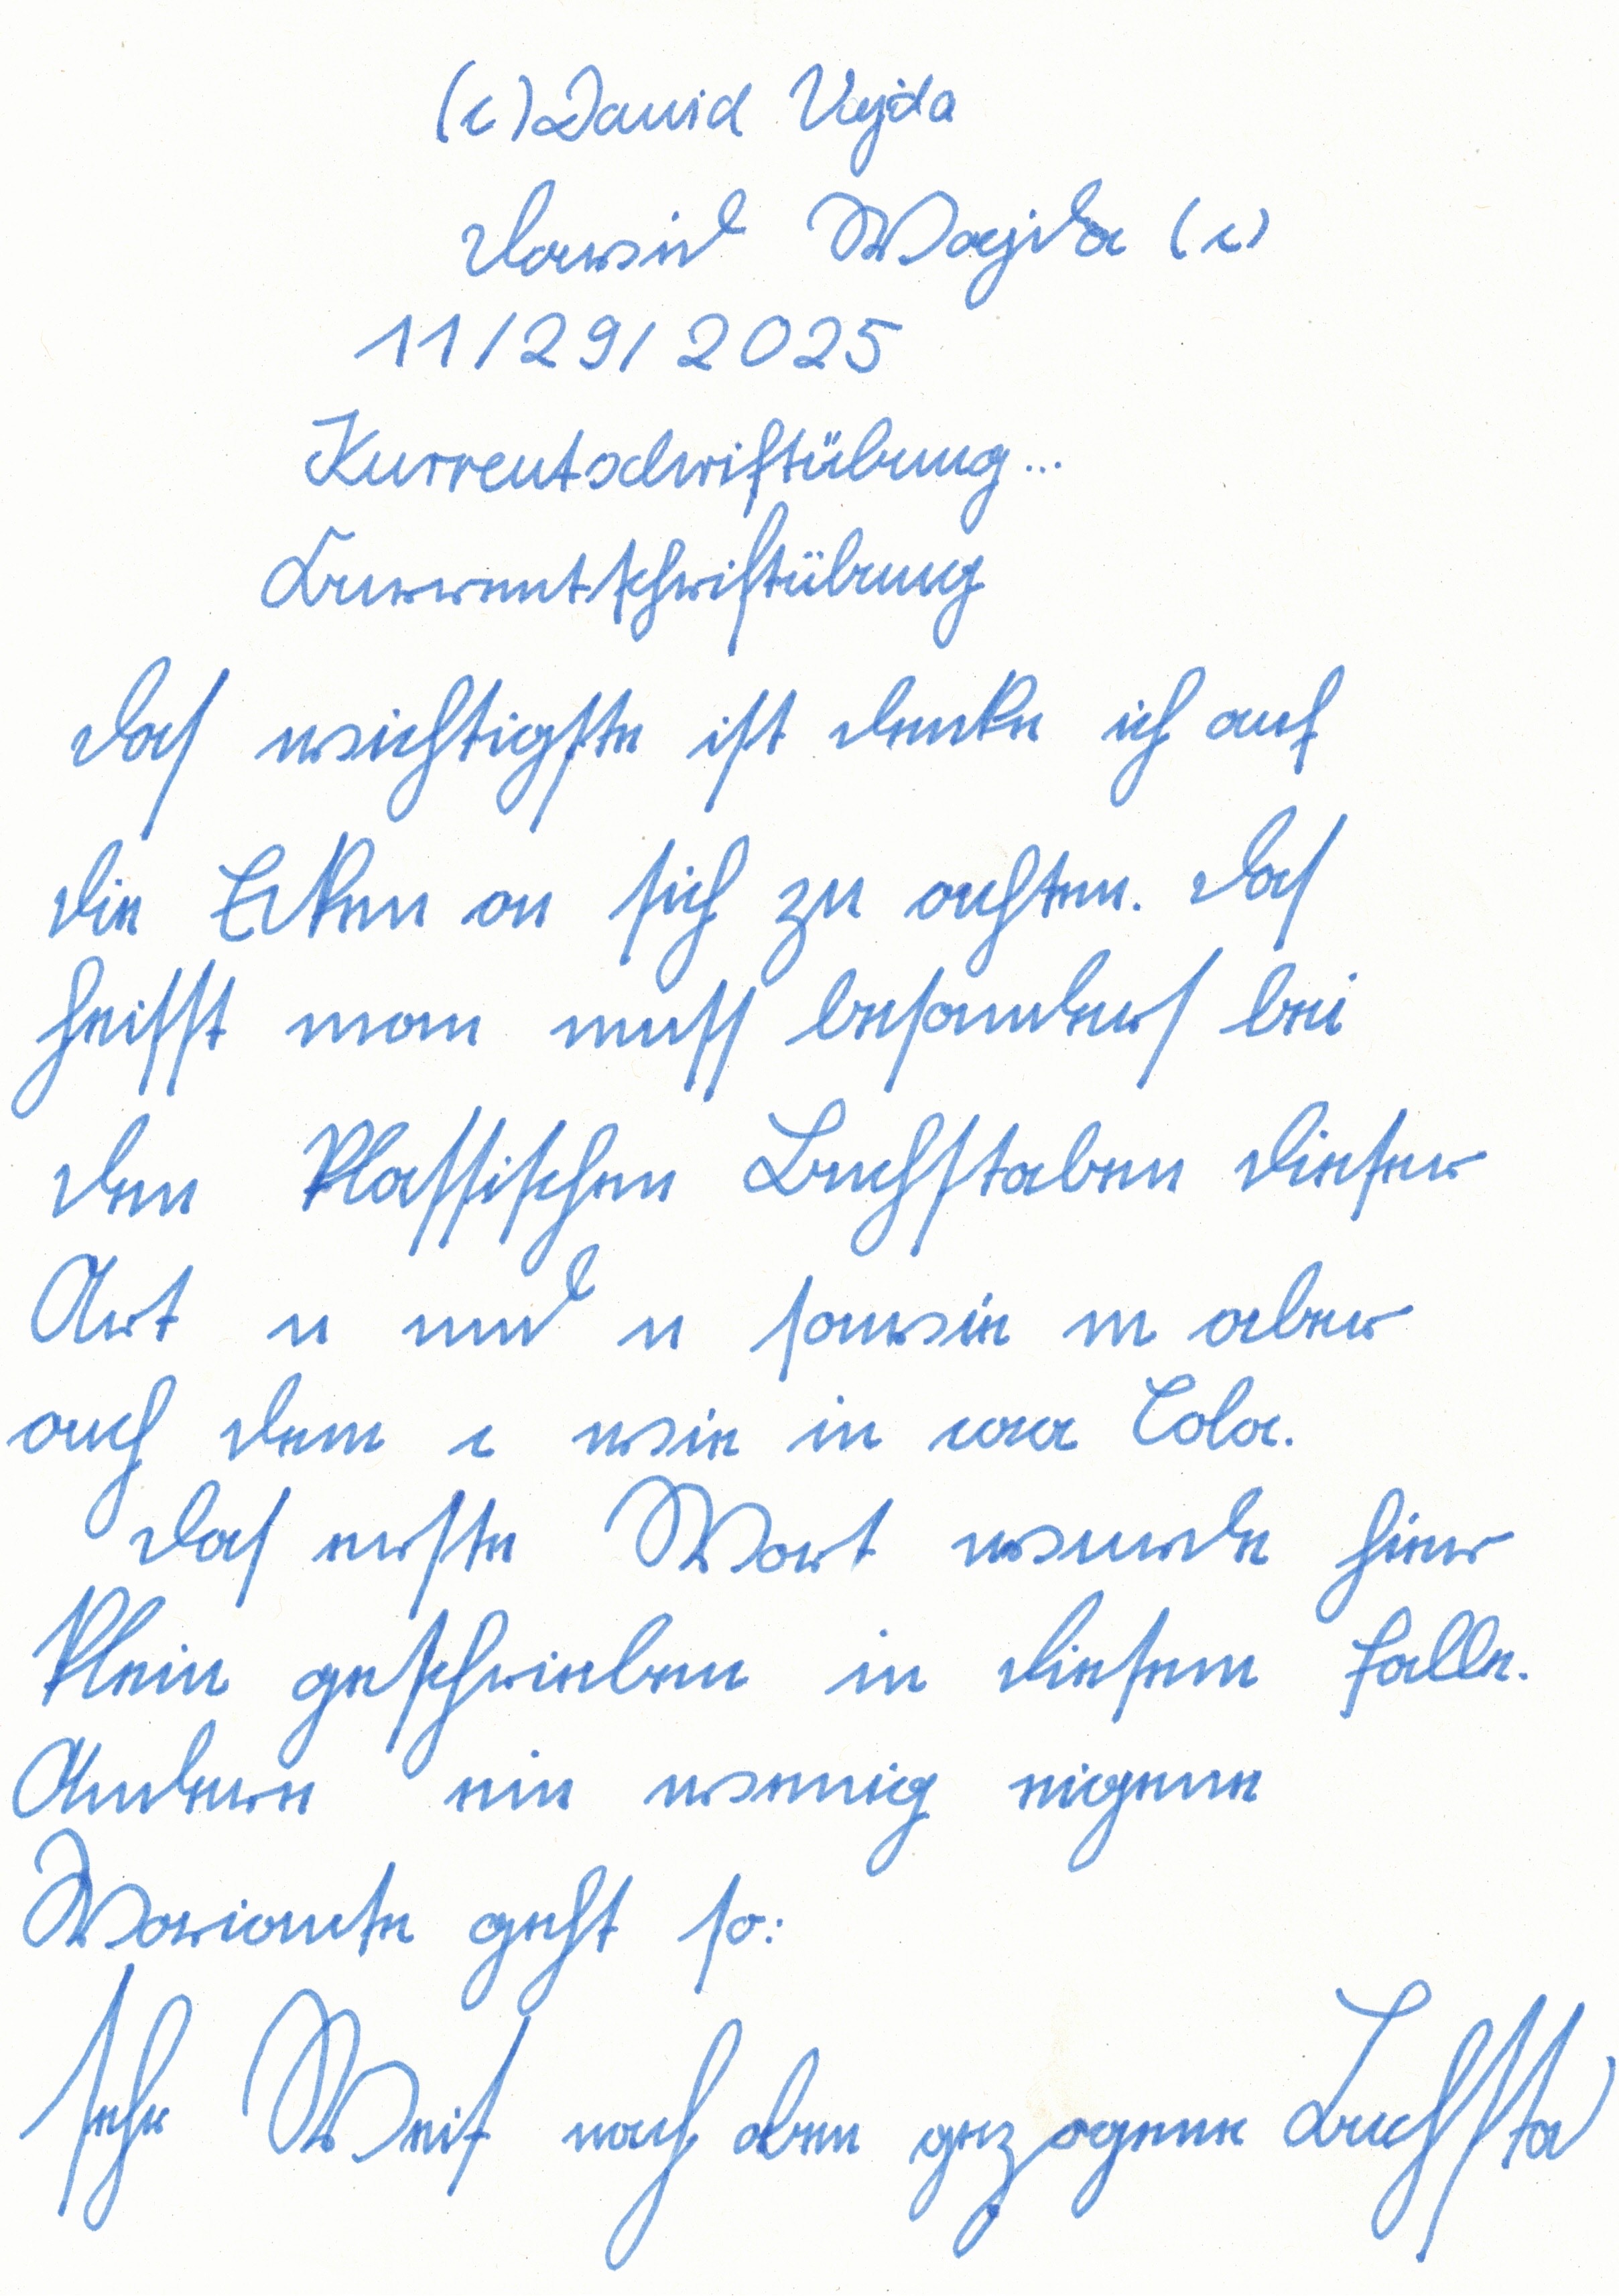 (c) David Vajda
David Vajda (c)
11/29/2025
Kurrentschriftübung...
Kurrentschriftübung
das wichtigste ist denke ich auf
die Ecken an sich zu achten. das
heisst man muss besonders bei
den klassischen Buchstaben dieser
Art n und u sowie m aber
auch dem c wie in coca Cola.
das erste Wort wurde hier
klein geschrieben in diesem falle.
Andere ein wenig eigene
Variante geht so:
sehr Weit nach oben gezogene Buchsta